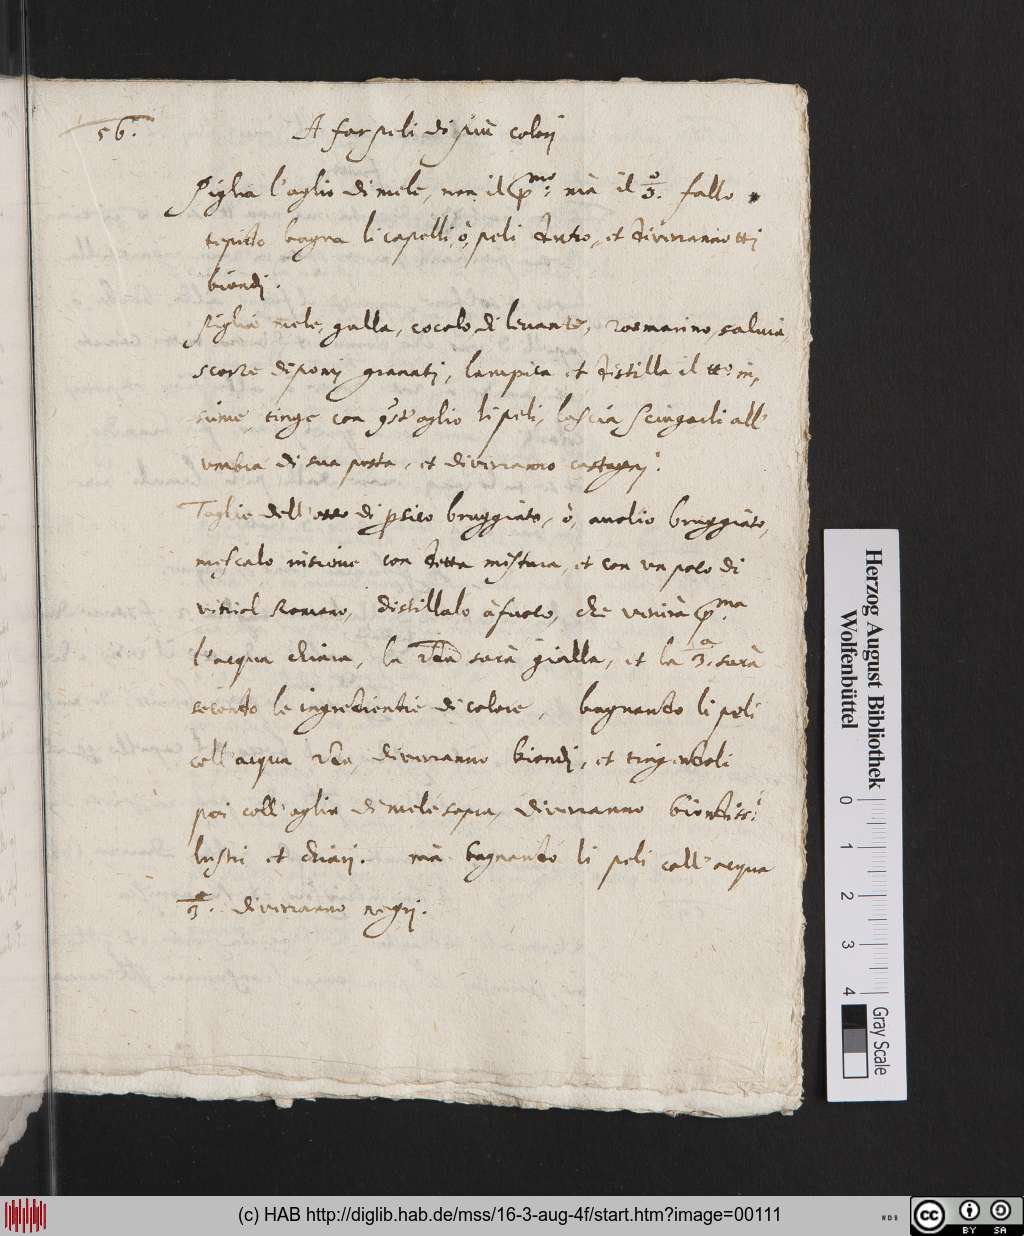 56.
A far peli di più colori
Piglia l'oglio di mele, non il p.mo mà il 3.o fallo
tepido bagna li capelli, ò, peli dentro, et diverranno tti
biondi.
Piglia mele, galla, cocolo di levante, rosmarino, salvia,
scorze di pomi granati, et distilla il tt.o in,
sieme, tinge con qst'oglio li peli, lascia sciugarli all'
umbra di sua posta, et diverranno castagni.
Toglie dell'osso di psico bruggiato, ò, avolio bruggiato,
mescalo insieme con detta mistura, et con un poco di
vitriol Romano, distillalo à fuoco, che venirà p.ma
l'acqua chiara, la 2da sarà gialla, et la 3.a sarà
secondo le ingredientie di colore, bagnando li peli
coll'acqua 2da, diverranno biondi, et tingendoli
poi coll'oglio di mele sopra, diverranno biondiss.i
lustri et chiari. mà bagnando li peli coll'acqua
3.a diverranno negri.
Herzog August Bibliothek
Wolfenbüttel
0 1 2 3 4
Gray Scale
(c) HAB http://diglib.hab.de/mss/16-3-aug-4f/start.htm?image=00111
cc BY SA